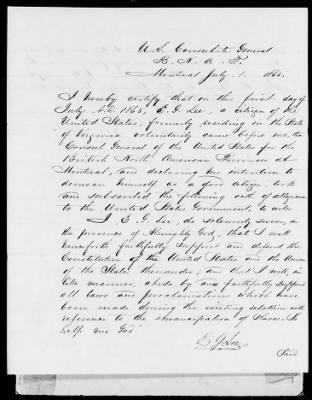 U.S. Consulate General
B. N. A. P.
Montreal July 1. 1865.
I hereby certify that on the first day of
July A.D. 1865, E. G. Lee, a citizen of the
United States, formerly residing in the State
of Virginia voluntarily came before me, the
Consul General of the United States for the
British North American Provinces at
Montreal, and declaring his intention to
demean himself as a good citizen, took
and subscribed the following oath of allegiance
to the United States Government, to wit:
I E. G. Lee, do solemnly swear, in
the presence of Almighty God, that I will
henceforth faithfully support and defend the
Constitution of the United States and the Union
of the States thereunder, and that I will, in
like manner, abide by and faithfully support
all laws and proclamations which have
been made during the existing rebellion with
reference to the emancipation of slaves. So
help me God"
E G Lee